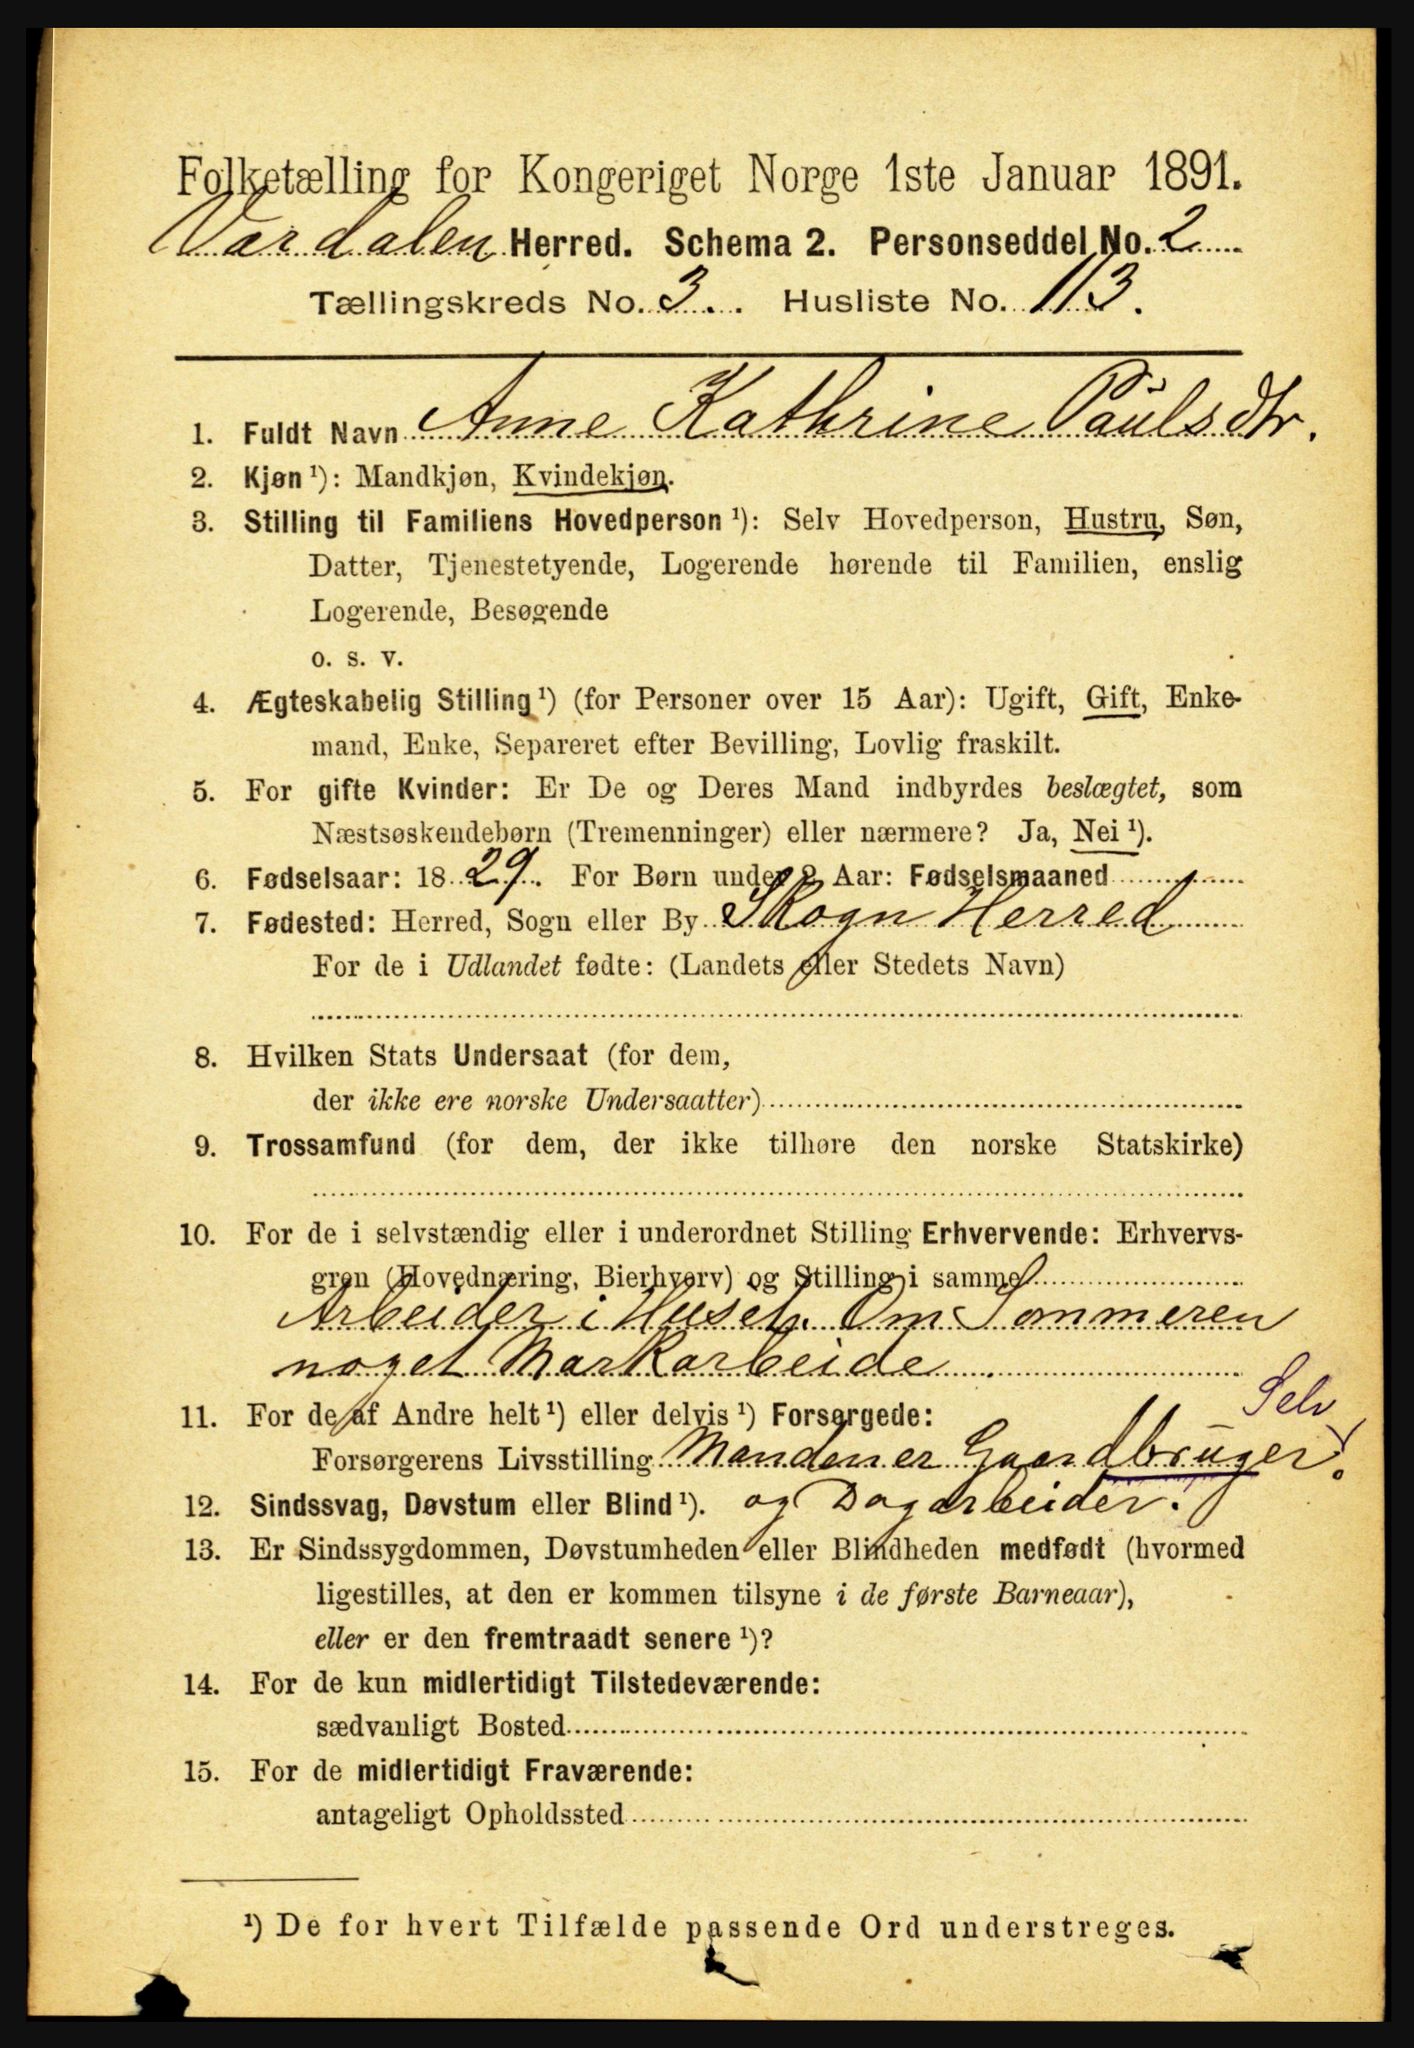 Folketælling for Kongeriget Norge 1ste Januar 1891.
Værdalen Herred. Schema 2. Personseddel No. 2
Tællingskreds No. 3. Husliste No. 113.
1. Fuldt Navn Anne Kathrine Paulsdtr.
2. Kjøn ¹): Mandkjøn, Kvindekjøn.
3. Stilling til Familiens Hovedperson ¹): Selv Hovedperson, Hustru, Søn,
Datter, Tjenestetyende, Logerende hørende til Familien, enslig
Logerende, Besøgende
o. s. v.
4. Ægteskabelig Stilling ¹) (for Personer over 15 Aar): Ugift, Gift, Enke-
mand, Enke, Separeret efter Bevilling, Lovlig fraskilt.
5. For gifte Kvinder: Er De og Deres Mand indbyrdes beslægtet, som
Næstsøskendebørn (Tremenninger) eller nærmere? Ja, Nei ¹).
6. Fødselsaar: 1829. For Børn under 2 Aar: Fødselsmaaned
7. Fødested: Herred, Sogn eller By Skogn Herred
For de i Udlandet fødte: (Landets eller Stedets Navn)
8. Hvilken Stats Undersaat (for dem,
der ikke ere norske Undersaatter)
9. Trossamfund (for dem, der ikke tilhøre den norske Statskirke)
10. For de i selvstændig eller i underordnet Stilling Erhvervende: Erhvervs-
gren (Hovednæring, Bierhverv) og Stilling i samme
Arbeider i Huset. Om Sommeren
noget Markarbeide.
11. For de af Andre helt ¹) eller delvis ¹) Forsørgede:
Selv
Forsørgerens Livsstilling Manden er Gaardbruger.
12. Sindssvag, Døvstum eller Blind ¹). og Dagarbeider.
13. Er Sindssygdommen, Døvstumheden eller Blindheden medfødt (hvormed
ligestilles, at den er kommen tilsyne i de første Barneaar),
eller er den fremtraadt senere ¹)?
14. For de kun midlertidigt Tilstedeværende:
sædvanligt Bosted
15. For de midlertidigt Fraværende:
antageligt Opholdssted
¹) De for hvert Tilfælde passende Ord understreges.